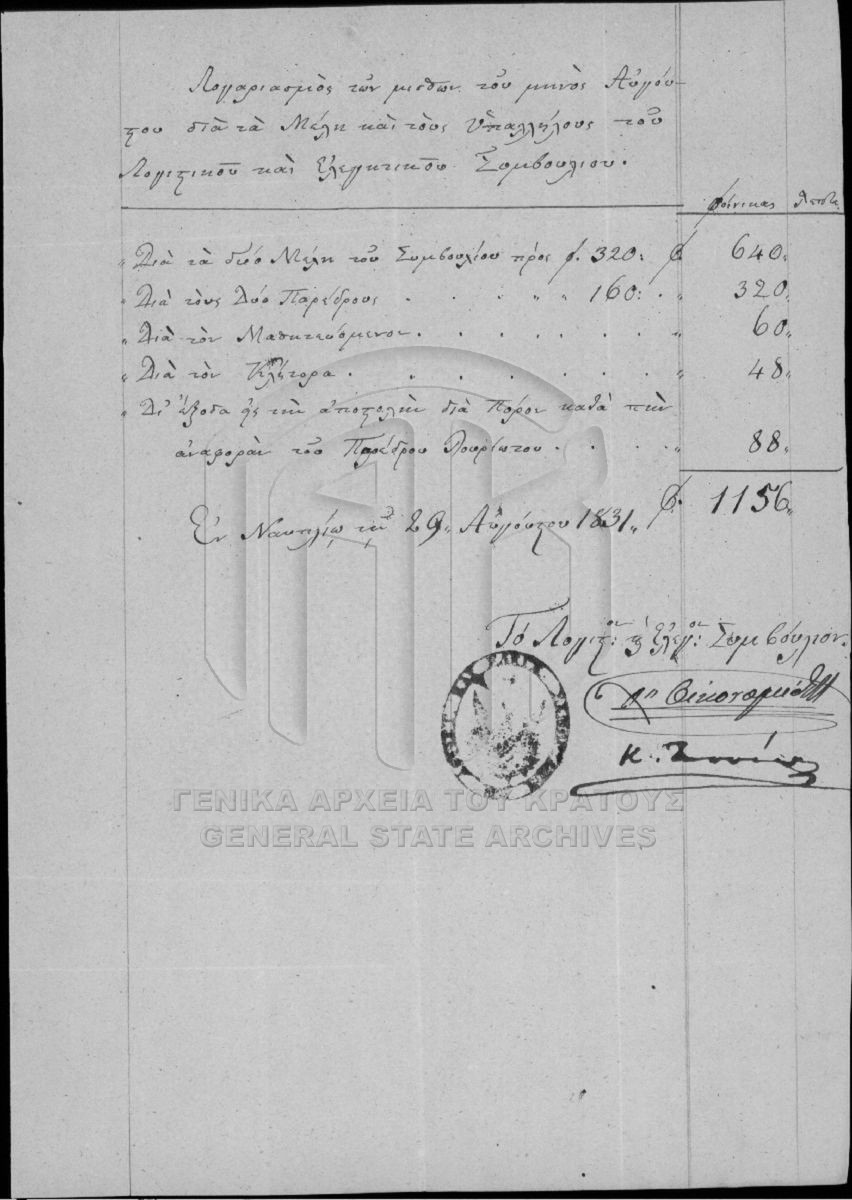 Λογαριασμὸς τῶν μισθῶν τοῦ μηνὸς Αὐγού-
στου διὰ τὰ Μέλη καὶ τοὺς Ὑπαλλήλους τοῦ
Λογιστικοῦ καὶ Ἐλεγκτικοῦ Συμβουλίου.
φοίνικας λεπτὰ
„ Διὰ τὰ δύο Μέλη τοῦ Συμβουλίου πρὸς φ. 320: φ. 640„
„ Διὰ τοὺς Δύο Παρέδρους . . . . „ „ 160: . „ 320„
„ Διὰ τὸν Μαθητευόμενον . . . . . . . „ 60„
„ Διὰ τὸν Κλήτορα . . . . . . . „ 48„
„ Δι' ἔξοδα εἰς τὴν ἀποστολὴν διὰ Πόρον κατὰ τὴν
ἀναφορὰν τοῦ Παρέδρου . . . . „ 88„
φ. 1156„
Ἐν Ναυπλίῳ τῇ 29„ Αὐγούστου 1831„
Τὸ Λογιστ:ὸν κ Ἐλεγ:ὸν Συμβούλιον.
ΓΕΝΙΚΑ ΑΡΧΕΙΑ ΤΟΥ ΚΡΑΤΟΥΣ
GENERAL STATE ARCHIVES